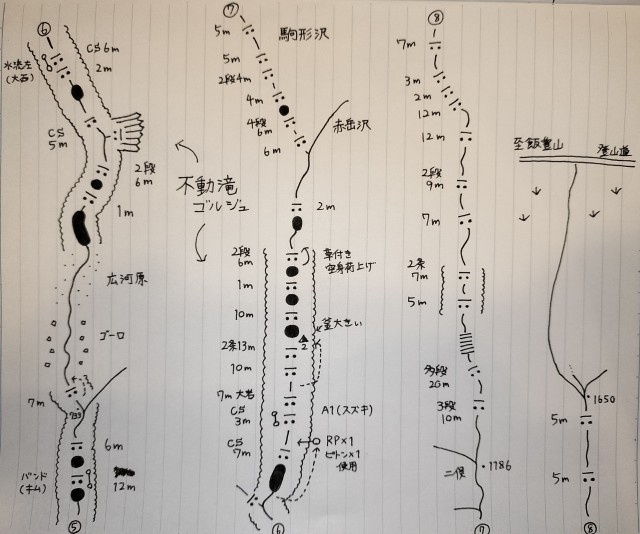 ⑥
CS 6m
2m
水流左
(大西)
CS
5m
2段
6m
1m
不動滝
ゴルジュ
広河原
ゴーロ
7m
933
6m
バンド
(キム)
12m
⑤
⑦
5m
駒形沢
5m
2段4m
4m
4段
6m
6m
赤岳沢
2m
2段
6m
草付き
空身荷上げ
1m
10m
釜大きい
2条13m
2
10m
7m 大岩
CS
3m
A1(スズキ)
CS
7m
RP×1
ピトン×1
使用
⑥
⑧
7m
3m
2m
12m
12m
2段
9m
7m
2条
7m
5m
多段
20m
3段
10m
二俣
1186
⑦
至飯豊山
登山道
1650
5m
5m
⑧